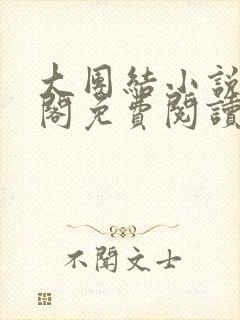 大團結小說
閣免費閱讀
不聞文士